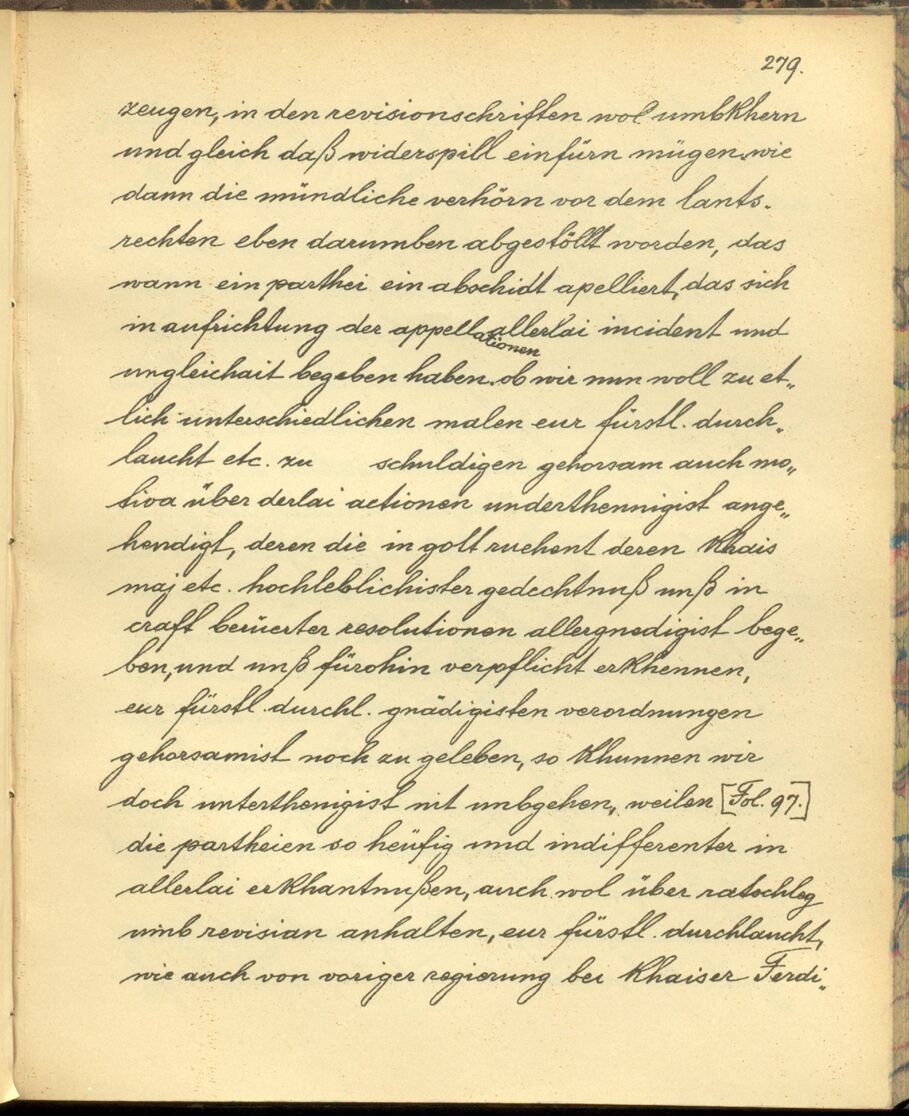 279.
zeugen, in den revisionschriften wol umbkhern
und gleich daß widerspill einfürn mügen. wie
dann die mündliche verhörn vor dem lants-
rechten eben darumben abgestöllt worden, das
wann ein parthei ein abschidt apelliert, das sich
in aufrichtung der appellationen allerlai incident und
ungleichait begeben haben. ob wir nun woll zu et„
lich unterschiedlichen malen eur fürstl. durch„
laucht etc. zu schuldigen gehorsam auch mo„
tiva über derlai actionen underthennigist ange„
hendigt, deren die in gott ruehent deren Khais
maj etc. hochleblichister gedechtnuß unß in
craft berüerter resolutionen allergnedigist bege„
ben, und unß fürohin verpflicht erkhennen,
eur fürstl. durchl. gnädigisten verordnungen
gehorsamist noch zu geleben, so khunnen wir
doch unterthenigist nit umbgehen, weilen [Fol. 97.]
die partheien so heüfig und indifferenter in
allerlai erkhantnußen, auch wol über ratschleg
umb revisian anhalten, eur fürstl. durchlaucht,
wie auch von voriger regierung bei Khaiser Ferdi„